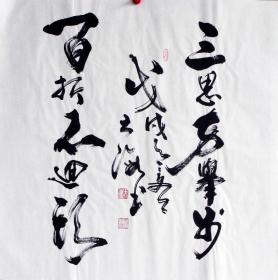 三思方举步
百折不回头
戊戌之
大海书